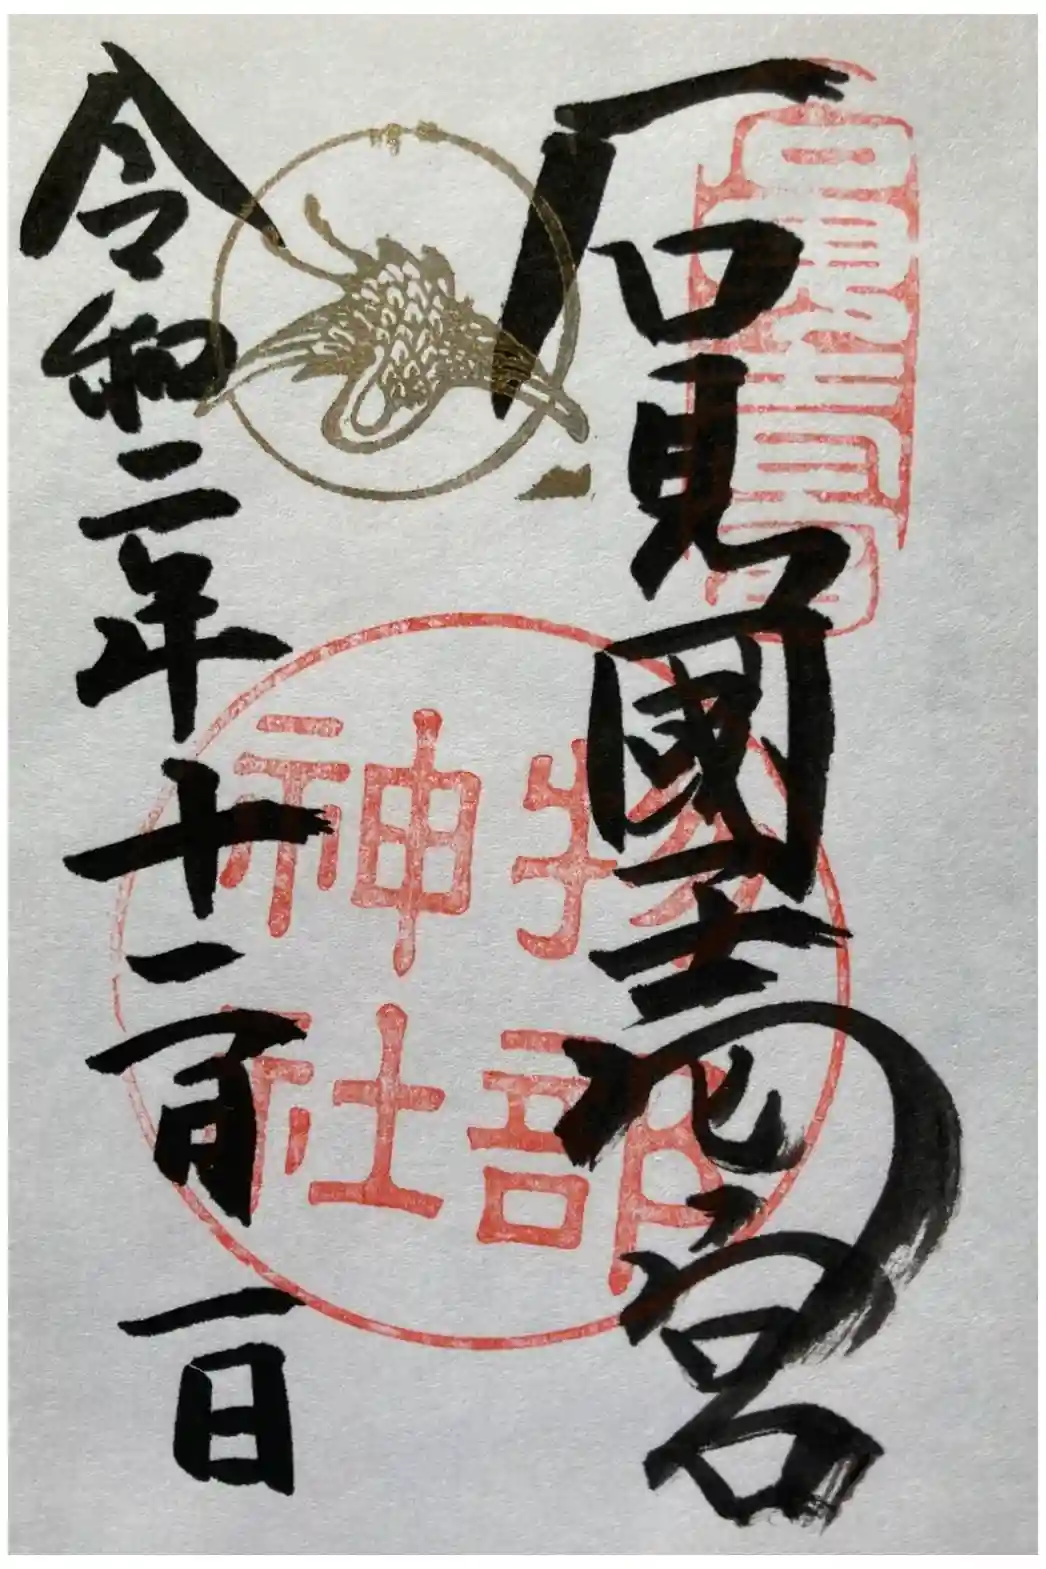 石見國壱宮
物部
神社
令和二年十二月一日